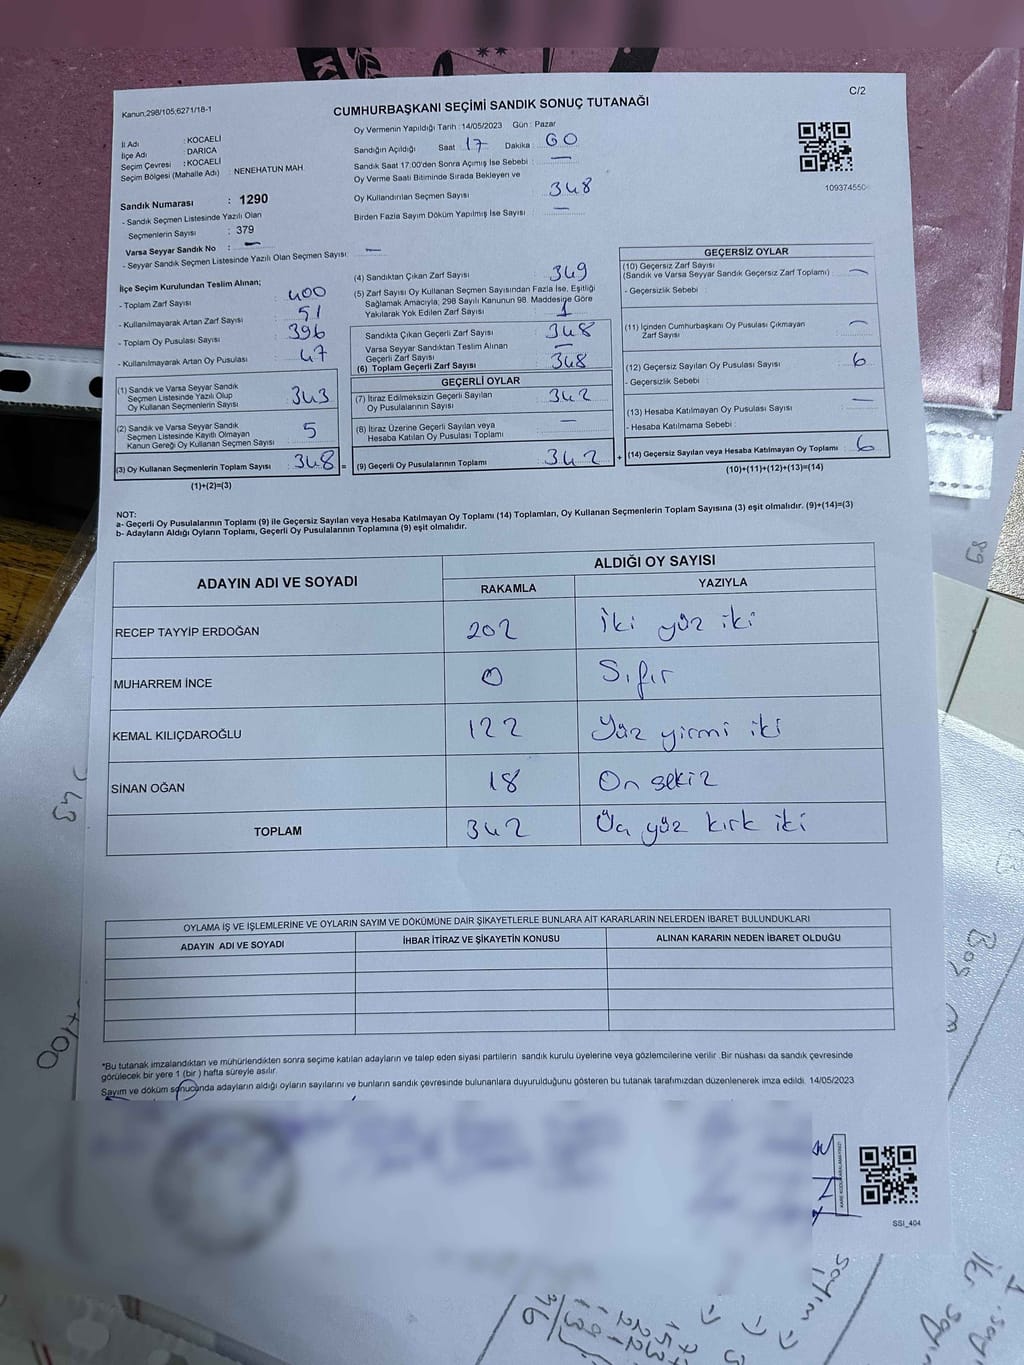 C/2
Kanun,298/105;6271/18-1
CUMHURBAŞKANI SEÇİMİ SANDIK SONUÇ TUTANAĞI
Oy Vermenin Yapıldığı Tarih : 14/05/2023 Gün : Pazar
İl Adı : KOCAELİ
İlçe Adı : DARICA
Seçim Çevresi : KOCAELİ
Seçim Bölgesi (Mahalle Adı) : NENEHATUN MAH.
Sandığın Açıldığı Saat 17 Dakika : 00
Sandık Saat 17:00'den Sonra Açımış İse Sebebi : —
Oy Verme Saati Bitiminde Sırada Bekleyen ve
Oy Kullandırılan Seçmen Sayısı : 348
Birden Fazla Sayım Döküm Yapılmış İse Sayısı : —
109374550
Sandık Numarası : 1290
- Sandık Seçmen Listesinde Yazılı Olan
Seçmenlerin Sayısı : 379
Varsa Seyyar Sandık No : —
- Seyyar Sandık Seçmen Listesinde Yazılı Olan Seçmen Sayısı: —
İlçe Seçim Kurulundan Teslim Alınan;
- Toplam Zarf Sayısı : 400
- Kullanılmayarak Artan Zarf Sayısı : 51
- Toplam Oy Pusulası Sayısı : 396
- Kullanılmayarak Artan Oy Pusulası : 47
(1) Sandık ve Varsa Seyyar Sandık
Seçmen Listesinde Yazılı Olup
Oy Kullanan Seçmenlerin Sayısı : 343
(2) Sandık ve Varsa Seyyar Sandık
Seçmen Listesinde Kayıtlı Olmayan
Kanun Gereği Oy Kullanan Seçmen Sayısı : 5
(3) Oy Kullanan Seçmenlerin Toplam Sayısı : 348 =
(1)+(2)=(3)
(4) Sandıktan Çıkan Zarf Sayısı : 349
(5) Zarf Sayısı Oy Kullanan Seçmen Sayısından Fazla İse, Eşitliği
Sağlamak Amacıyla; 298 Sayılı Kanunun 98. Maddesine Göre
Yakılarak Yok Edilen Zarf Sayısı : 1
Sandıkta Çıkan Geçerli Zarf Sayısı : 348
Varsa Seyyar Sandıktan Teslim Alınan
Geçerli Zarf Sayısı : —
(6) Toplam Geçerli Zarf Sayısı : 348
GEÇERLİ OYLAR
(7) İtiraz Edilmeksizin Geçerli Sayılan
Oy Pusulalarının Sayısı : 342
(8) İtiraz Üzerine Geçerli Sayılan veya
Hesaba Katılan Oy Pusulası Toplamı : —
(9) Geçerli Oy Pusulalarının Toplamı : 342 +
GEÇERSİZ OYLAR
(10) Geçersiz Zarf Sayısı
(Sandık ve Varsa Seyyar Sandık Geçersiz Zarf Toplamı) : —
- Geçersizlik Sebebi :
(11) İçinden Cumhurbaşkanı Oy Pusulası Çıkmayan
Zarf Sayısı : —
(12) Geçersiz Sayılan Oy Pusulası Sayısı : 6
- Geçersizlik Sebebi :
(13) Hesaba Katılmayan Oy Pusulası Sayısı : —
- Hesaba Katılmama Sebebi :
(14) Geçersiz Sayılan veya Hesaba Katılmayan Oy Toplamı : 6
(10)+(11)+(12)+(13)=(14)
NOT:
a- Geçerli Oy Pusulalarının Toplamı (9) ile Geçersiz Sayılan veya Hesaba Katılmayan Oy Toplamı (14) Toplamları, Oy Kullanan Seçmenlerin Toplam Sayısına (3) eşit olmalıdır. (9)+(14)=(3)
b- Adayların Aldığı Oyların Toplamı, Geçerli Oy Pusulalarının Toplamına (9) eşit olmalıdır.
ADAYIN ADI VE SOYADI ALDIĞI OY SAYISI
RAKAMLA YAZIYLA
RECEP TAYYİP ERDOĞAN 202 İki yüz iki
MUHARREM İNCE 0 Sıfır
KEMAL KILIÇDAROĞLU 122 Yüz yirmi iki
SİNAN OĞAN 18 On sekiz
TOPLAM 342 Üç yüz kırk iki
OYLAMA İŞ VE İŞLEMLERİNE VE OYLARIN SAYIM VE DÖKÜMÜNE DAİR ŞİKAYETLERLE BUNLARA AİT KARARLARIN NELERDEN İBARET BULUNDUKLARI
ADAYIN ADI VE SOYADI İHBAR İTİRAZ VE ŞİKAYETİN KONUSU ALINAN KARARIN NEDEN İBARET OLDUĞU
*Bu tutanak imzalandıktan ve mühürlendikten sonra seçime katılan adayların ve talep eden siyasi partilerin sandık kurulu üyelerine veya gözlemcilerine verilir .Bir nüshası da sandık çevresinde
görülecek bir yere 1 (bir ) hafta süreyle asılır.
Sayım ve döküm sonucunda adayların aldığı oyların sayılarını ve bunların sandık çevresinde bulunanlara duyurulduğunu gösteren bu tutanak tarafımızdan düzenlenerek imza edildi. 14/05/2023
SSİ_404